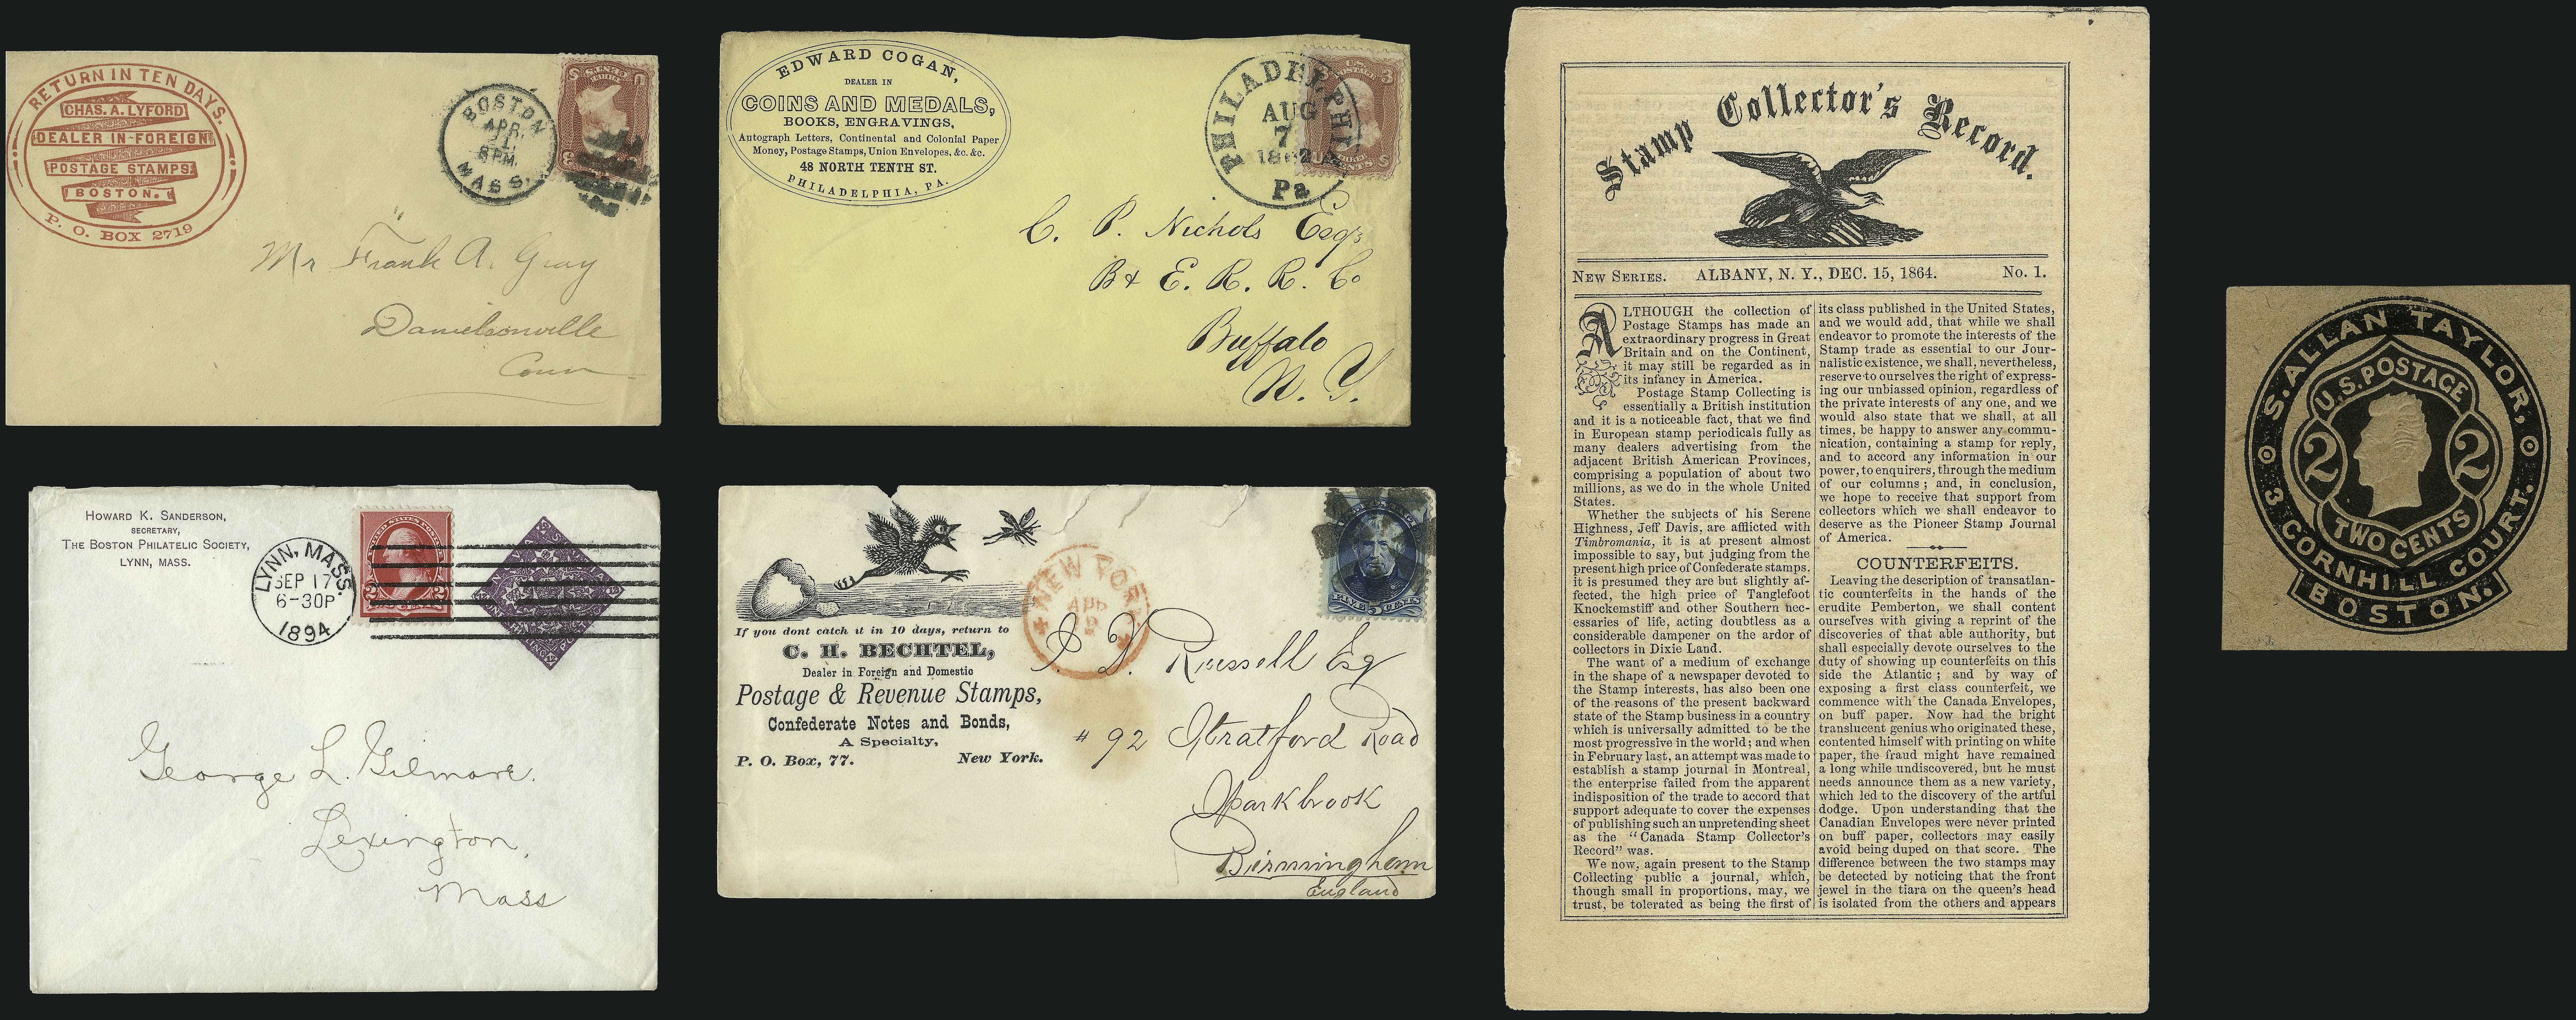 RETURN IN TEN DAYS.
CHAS. A. LYFORD
DEALER IN FOREIGN
POSTAGE STAMPS.
BOSTON.
P. O. BOX 2719
BOSTON
APR.
8 PM.
MASS.
Mr Frank A. Gray
Danielsonville
Conn
EDWARD COGAN,
DEALER IN
COINS AND MEDALS,
BOOKS, ENGRAVINGS,
Autograph Letters, Continental and Colonial Paper
Money, Postage Stamps, Union Envelopes, &c. &c.
48 NORTH TENTH ST.
PHILADELPHIA, PA.
PHILADELPHIA
AUG
7
1862
Pa
U.S. 3
POSTAGE
C. P. Nichols Esq.
B & E. R. R. Co
Buffalo
N. Y.
HOWARD K. SANDERSON,
SECRETARY,
THE BOSTON PHILATELIC SOCIETY,
LYNN, MASS.
LYNN, MASS.
SEP 17
6-30P
1894
2 2
George L. Gilmore.
Lexington,
Mass
If you dont catch it in 10 days, return to
C. H. BECHTEL,
Dealer in Foreign and Domestic
Postage & Revenue Stamps,
Confederate Notes and Bonds,
A Specialty,
P. O. Box, 77. New York.
NEW YORK
APR
FIVE 5 CENTS
Russell Esq
# 92 Stratford Road
Sparkbrook
Birmingham
England
Stamp Collector's Record.
NEW SERIES. ALBANY, N. Y., DEC. 15, 1864. No. 1.
ALTHOUGH the collection of
Postage Stamps has made an
extraordinary progress in Great
Britain and on the Continent,
it may still be regarded as in
its infancy in America.
Postage Stamp Collecting is
essentially a British institution
and it is a noticeable fact, that we find
in European stamp periodicals fully as
many dealers advertising from the
adjacent British American Provinces,
comprising a population of about two
millions, as we do in the whole United
States.
Whether the subjects of his Serene
Highness, Jeff Davis, are afflicted with
Timbromania, it is at present almost
impossible to say, but judging from the
present high price of Confederate stamps.
it is presumed they are but slightly af-
fected, the high price of Tanglefoot
Knockemstiff and other Southern nec-
essaries of life, acting doubtless as a
considerable dampener on the ardor of
collectors in Dixie Land.
The want of a medium of exchange
in the shape of a newspaper devoted to
the Stamp interests, has also been one
of the reasons of the present backward
state of the Stamp business in a country
which is universally admitted to be the
most progressive in the world; and when
in February last, an attempt was made to
establish a stamp journal in Montreal,
the enterprise failed from the apparent
indisposition of the trade to accord that
support adequate to cover the expenses
of publishing such an unpretending sheet
as the "Canada Stamp Collector's
Record" was.
We now, again present to the Stamp
Collecting public a journal, which,
though small in proportions, may, we
trust, be tolerated as being the first of
its class published in the United States,
and we would add, that while we shall
endeavor to promote the interests of the
Stamp trade as essential to our Jour-
nalistic existence, we shall, nevertheless,
reserve to ourselves the right of express-
ing our unbiassed opinion, regardless of
the private interests of any one, and we
would also state that we shall, at all
times, be happy to answer any commu-
nication, containing a stamp for reply,
and to accord any information in our
power, to enquirers, through the medium
of our columns; and, in conclusion,
we hope to receive that support from
collectors which we shall endeavor to
deserve as the Pioneer Stamp Journal
of America.
COUNTERFEITS.
Leaving the description of transatlan-
tic counterfeits in the hands of the
erudite Pemberton, we shall content
ourselves with giving a reprint of the
discoveries of that able authority, but
shall especially devote ourselves to the
duty of showing up counterfeits on this
side the Atlantic; and by way of
exposing a first class counterfeit, we
commence with the Canada Envelopes,
on buff paper. Now had the bright
translucent genius who originated these,
contented himself with printing on white
paper, the fraud might have remained
a long while undiscovered, but he must
needs announce them as a new variety,
which led to the discovery of the artful
dodge. Upon understanding that the
Canadian Envelopes were never printed
on buff paper, collectors may easily
avoid being duped on that score. The
difference between the two stamps may
be detected by noticing that the front
jewel in the tiara on the queen's head
is isolated from the others and appears
S. ALLAN TAYLOR,
U.S. POSTAGE
2 2
TWO CENTS
3 CORNHILL COURT.
BOSTON.